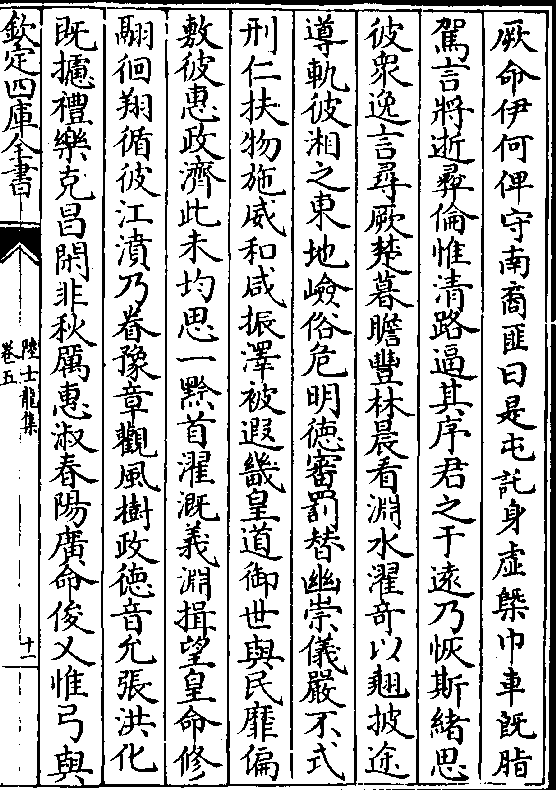 厥命伊何俾守南裔匪曰是屯託身虛槩巾車既脂
駕言將逝彛倫惟清路逼其序君之于遠乃恢斯緒思
彼衆逸言尋厥楚暮瞻豐林晨看淵水濯竒以翹披途
遵軌彼湘之東地嶮俗危明徳審罰替幽崇儀嚴不式
刑仁扶物施威和咸振澤被遐畿皇道御世與民靡偏
敷彼惠政濟此未均思一黔首濯溉義淵揖望皇命修
翮徊翔循彼江濆乃眷豫章觀風樹政徳音允張洪化
既攄禮樂克昌閑非秋厲惠淑春陽廣命俊乂惟弓與
欽定四庫全書
陸士龍集
卷五
十一